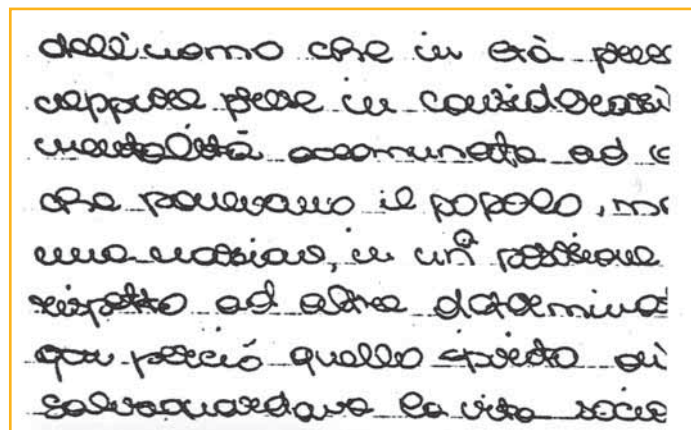 dell'uomo che in età prece
neppure prese in considerazi
mentalità accomunata ad
che ponevano il popolo,
una nazione, in una posizione
rispetto ad altre determina
qui perciò quello spirito di
salvaguardava la vita socie